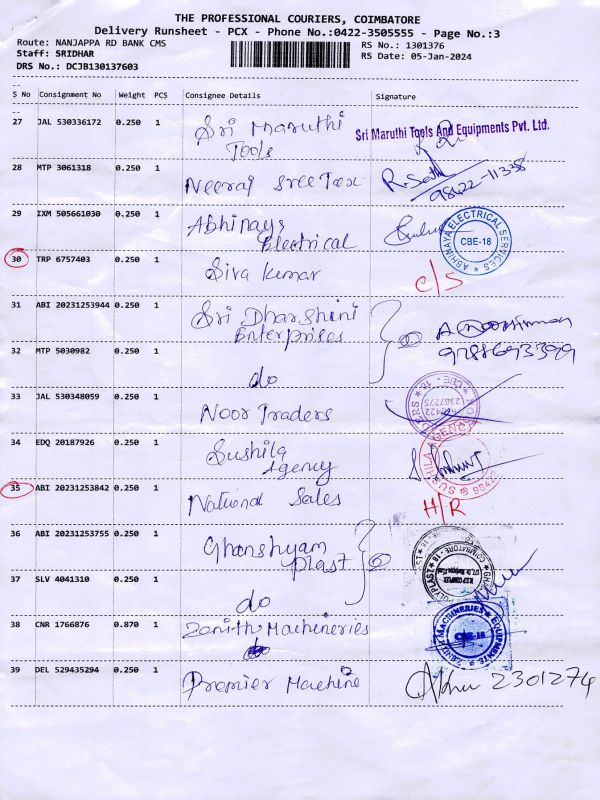 THE PROFESSIONAL COURIERS, COIMBATORE
Delivery Runsheet - PCX - Phone No.:0422-3505555 - Page No.:3
Route: NANJAPPA RD BANK CMS
RS No.: 1301376
Staff: SRIDHAR
RS Date: 05-Jan-2024
DRS No.: DCJB130137603
S No Consignment No Weight PCS Consignee Details Signature
27 JAL 530336172 0.250 1 Sri Maruthi Tools
Sri Maruthi Tools And Equipments Pvt. Ltd.
28 MTP 3061318 0.250 1 Neeraj Sree Tex
98422-11338
29 IXM 505661030 0.250 1 Abhinaya Electrical
ABHINAYA ELECTRICAL SERVICES
CBE-18
30 TRP 6757403 0.250 1 Siva Kumar C/S
31 ABI 20231253944 0.250 1 Sri Dharshini Enterprises
32 MTP 5030982 0.250 1 do
33 JAL 530348059 0.250 1 Noor Traders
CBE - 18
2387275
34 EDQ 20187926 0.250 1 Sushila Agency
SUSHILA AGENCY
35 ABI 20231253842 0.250 1 National Sales H/R
36 ABI 20231253755 0.250 1 Ghanshyam Plast
37 SLV 4041310 0.250 1 do
COIMBATORE - 18
POLYPLAST
38 CNR 1766876 0.870 1 Zenith Machineries
ZENITH MACHINERIES EQUIPMENTS
CBE-18
39 DEL 529435294 0.250 1 Premier Machine
2301274